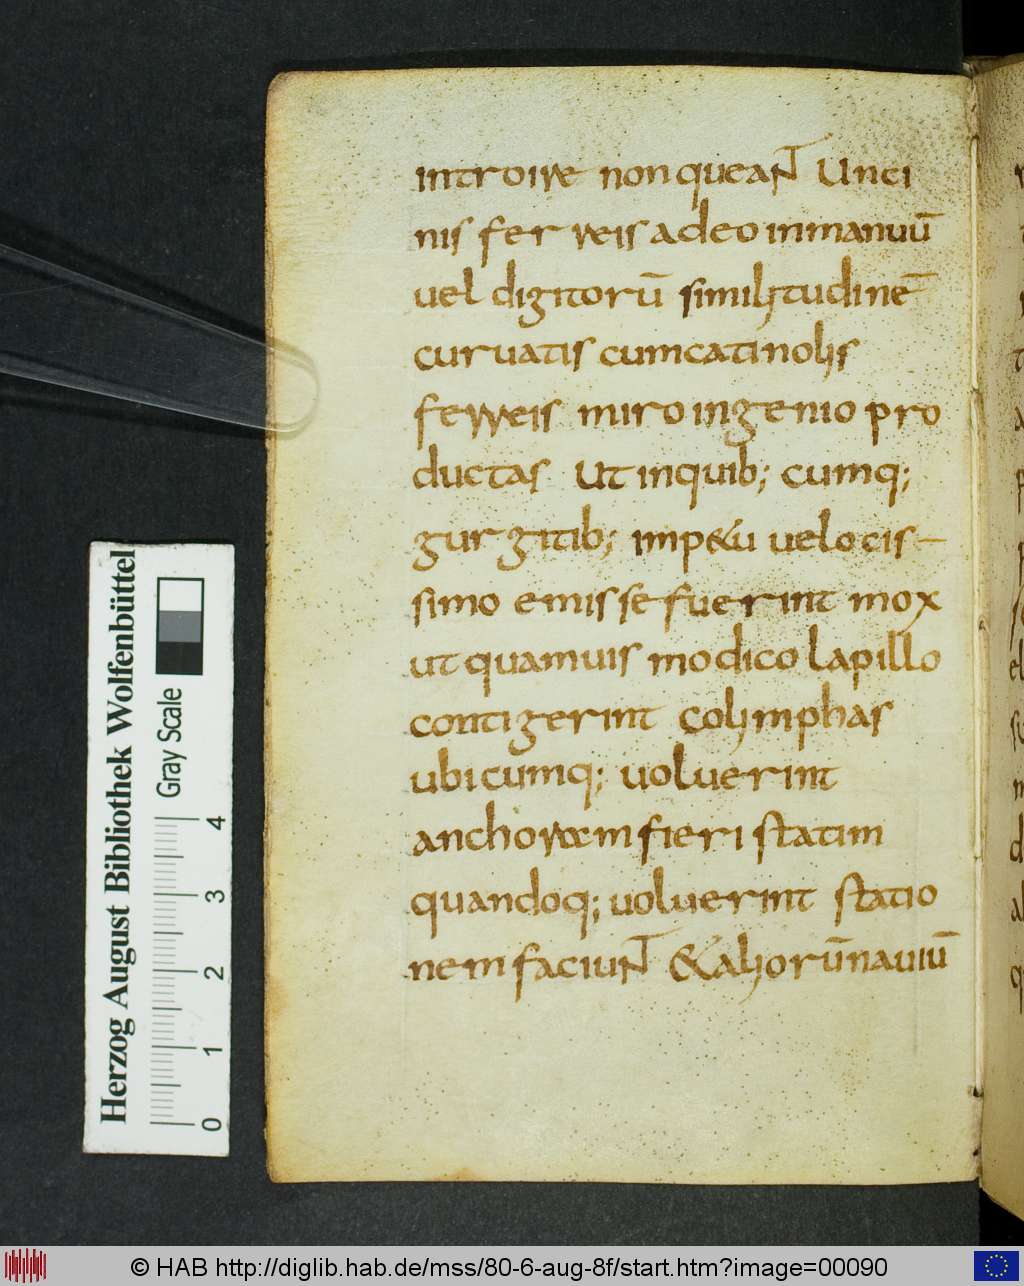 introire non queant Unci
nis ferreis adeo inmanuū
uel digitorū similitudinē
curuatis cumcatinolis
ferreis miro ingenio pro
ductas Ut inquib; cumq;
gurgitib; imp&u uelocis-
simo emisse fuerint mox
ut quamuis modico lapillo
contigerint colimphas
ubicumq; uoluerint
anchoram fieri statim
quandoq; uoluerint statio
nem faciunt & aliorū nauiū
Herzog August Bibliothek Wolfenbüttel
Gray Scale
0 1 2 3 4
© HAB http://diglib.hab.de/mss/80-6-aug-8f/start.htm?image=00090